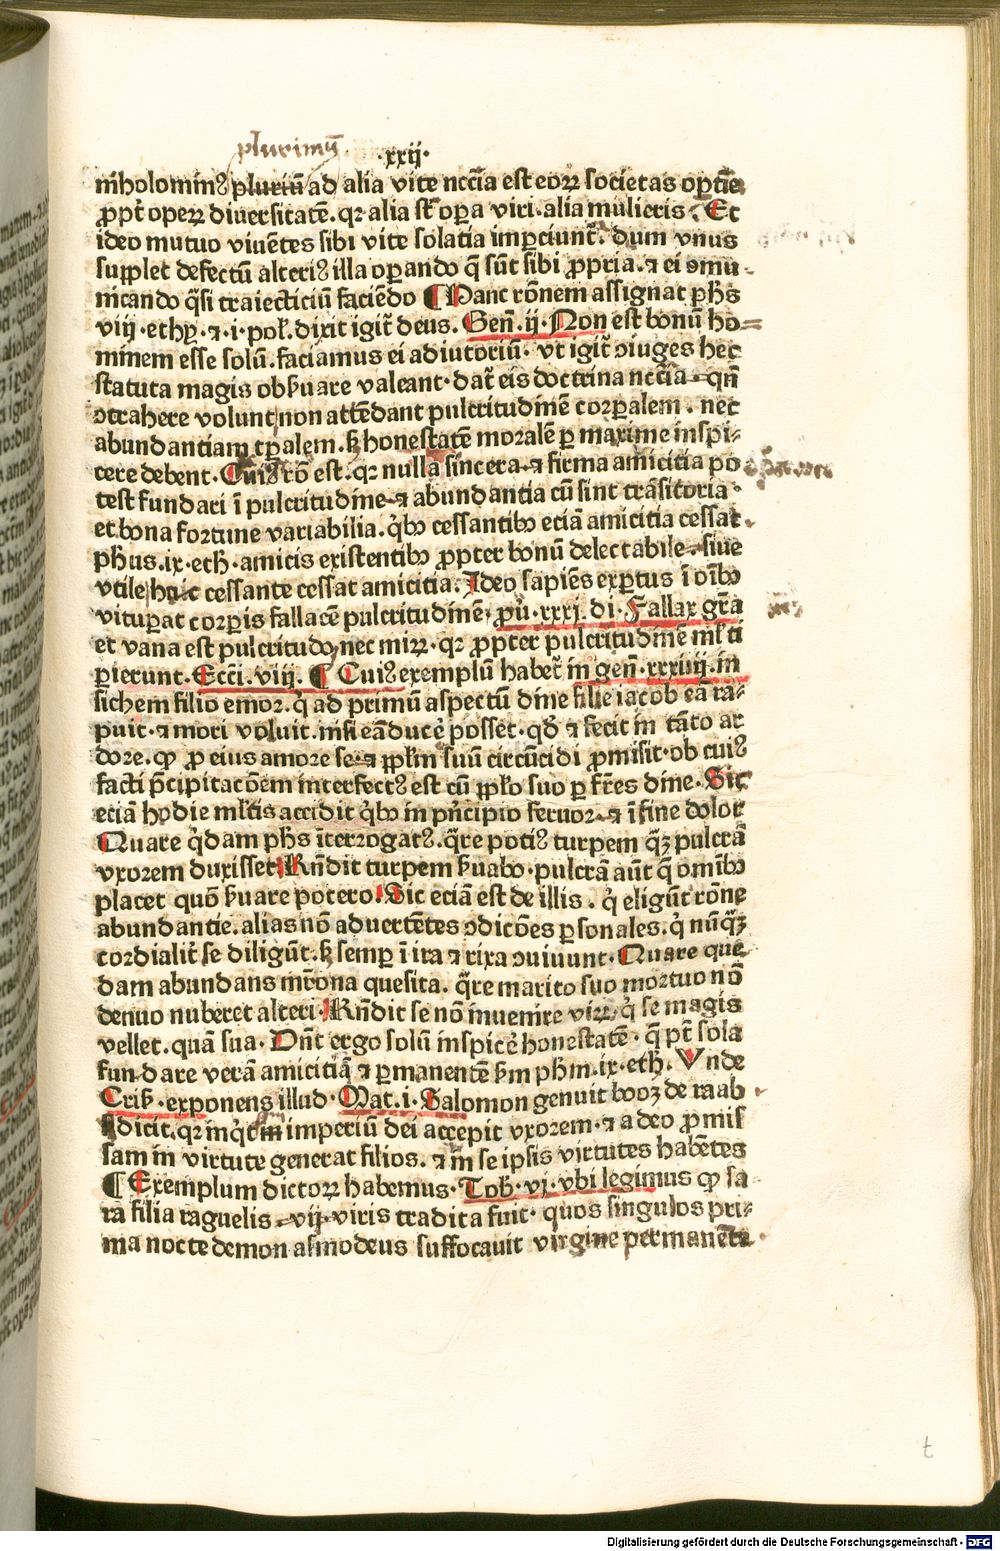 plurimū
·xxij·
nīholominꝰ pluriū ad alia vite nccīa est eoꝝ societas optīe
ꝓpt̄ operꝝ diuersitatē. qꝛ alia sūt oꝑa viri. alia mulieris. Et
ideo mutuo viuētes sibi vite solatia imꝑciunt. dum vnus
supplet defectū alteriꝰ illa oꝑando q̄ sūt sibi ꝓpria. ⁊ ei ꝯmu
nicando q̄si traiecticiū faciēdo ¶ Hanc rōnem assignat pħs
viij · ethy. ⁊ · i · pol. dixit igit̄ deus. Gen̄. ij · Non est bonū ho⸗
minem esse solū. faciamus ei adiutoriū · vt igit̄ ꝯiuges hec
statuta magis obẜuare valeant · dat̄ eis doctrina nccīa · qn̄
ꝯtrahere volunt, non attēdant pulcritudinē corꝑalem. nec
abundantiam tꝑalem. ẜꝫ honestatē moralē ꝑ maxime inspi⸗
cere debent. Cuiꝰ rō est. qꝛ nulla sincera ⁊ firma amicitia po
test fundari ī pulcritudine ⁊ abundantia cū sint trāsitoria ·
et bona fortune variabilia. q̇bꝰ cessantibꝰ eciā amicitia cessat.
pħus. ix. eth̄. amicis existentibꝰ ꝓpter bonū delectabile siue
vtile, huic cessante cessat amicitia. Ideo sapiēs exꝑtus ī oībꝰ
vituꝑat corꝑis fallacē pulcritudinē, ꝓu̇. xxxj. di. Fallax gr̄a
et vana est pulcritudo, nec miꝝ. qꝛ ꝓpter pulcritudinē ml̄ti
ꝑierunt. Ecci. viij. ¶ Cuiꝰ exemplū habet̄ in gen̄. xxxiiij. in
sichem filio emor. q̇ ad primū aspectū dine filie iacob eā ra⸗
puit. ⁊ mori voluit. nisi eā ducē posset. qđ ⁊ fecit in tāto ar
dore. ꝙ ꝓ eius amore se ⁊ ppłm suū circūcidi ꝓmisit. ob cuiꝰ
facti p̄cipitacōem interfectꝰ est cū ppło suo ꝑ fr̄es dine. Sic
eciā hodie ml̄tis accidit q̇bꝰ in pn̄cipio feruor. ⁊ ī fine dolor
Quare q̇dam pħs īterrogatꝰ. q̄re potiꝰ turpem q̄ꝫ pulcrā
vxorem duxisset, Rn̄dit turpem ẜuabo. pulcrā aūt q̄ omībꝰ
placet quō ẜuare potero, Sic eciā est de illis. q̇ eligūt rōne
abundantie. alias nō aduertētes ꝯdicōes ꝑsonales. q̇ nūq̄ꝫ
cordialit̄ se diligūt. ẜꝫ semꝑ ī ira ⁊ rixa ꝯuiuunt. Quare que
dam abundans mr̄ona quesita. q̄re marito suo mortuo nō
denuo nuberet alteri. Rn̄dit se nō inuenire viꝝ. q̇ se magis
vellet. quā sua. Dn̄t ergo solū inspicē honestatē. q̄ pt̄ sola
fundare verā amicitiā ⁊ ꝑmanentē ẜm pħm. ix. eth̄. Vnde
Criẜ. exponens illud. Mat. i. Salomon genuit booz de raab
dicit. qꝛ inq̇t in imperiū dei accepit vxorem. ⁊ adeo ꝓmis
sam in virtute generat filios. ⁊ in se ipsis virtutes habētes
¶ Exemplum dictoꝝ habemus. Tob̄. vj. vbi legimus ꝙ sa
ra filia raguelis. vij. viris tradita fuit. quos singulos pri⸗
ma nocte demon asmodeus suffocauit virgine permanēte.
t
Digitalisierung gefördert durch die Deutsche Forschungsgemeinschaft - DFG